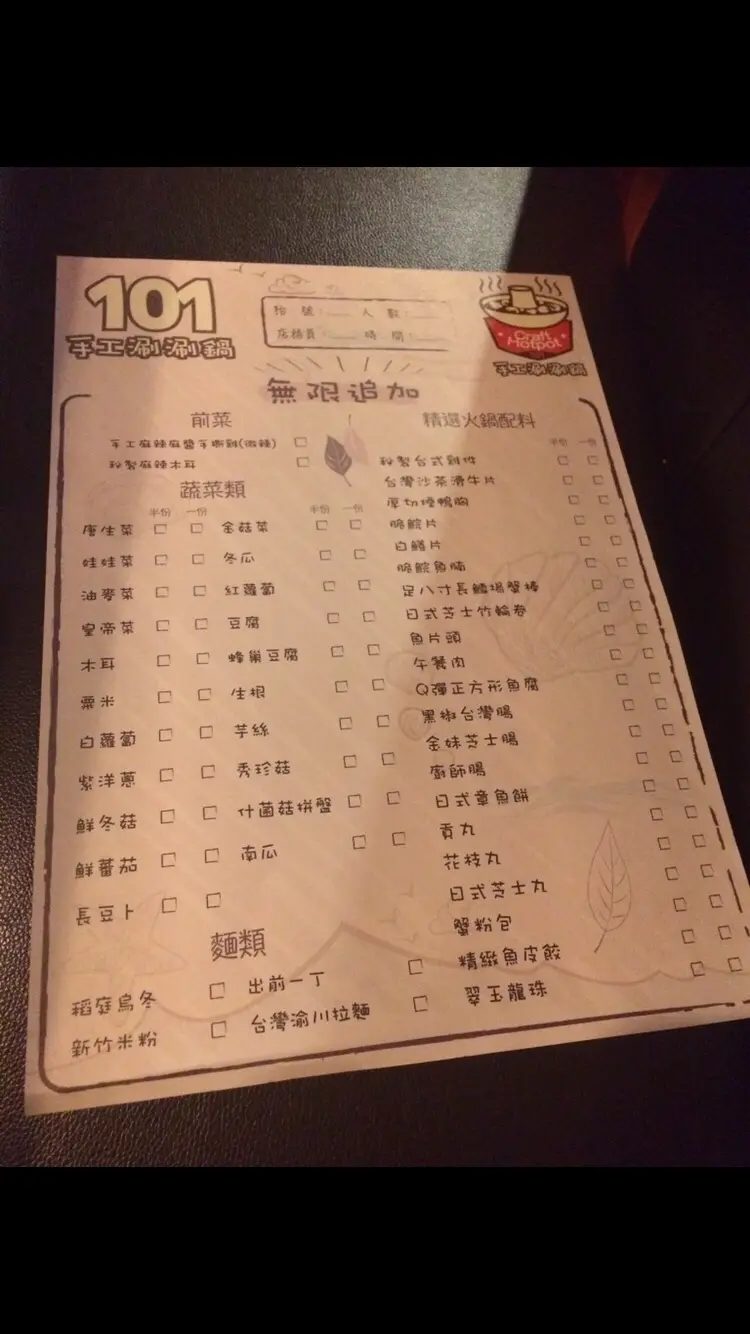 101
手工涮涮鍋
枱號：___ 人數：___
店務員：___ 時間：___
Craft
Hotpot
手工涮涮鍋
無限追加
前菜
手工麻辣麻醬手撕雞(微辣) □
秘製麻辣木耳 □
蔬菜類
半份 一份 半份 一份
唐生菜 □ □ 金菇菜 □ □
娃娃菜 □ □ 冬瓜 □ □
油麥菜 □ □ 紅蘿蔔 □ □
皇帝菜 □ □ 豆腐 □ □
木耳 □ □ 蜂巢豆腐 □ □
粟米 □ □ 生根 □ □
白蘿蔔 □ □ 芋絲 □ □
紫洋蔥 □ □ 秀珍菇 □ □
鮮冬菇 □ □ 什菌菇拼盤 □ □
鮮蕃茄 □ □ 南瓜 □ □
長豆卜 □ □
麵類
稻庭烏冬 □ 出前一丁 □
新竹米粉 □ 台灣渝川拉麵 □
精選火鍋配料
半份 一份
秘製台式雞件 □ □
台灣沙茶滑牛片 □ □
厚切煙鴨胸 □ □
脆鯇片 □ □
白鱔片 □ □
脆鯇魚腩 □ □
足八寸長鱈場蟹棒 □ □
日式芝士竹輪卷 □ □
魚片頭 □ □
午餐肉 □ □
Q彈正方形魚腐 □ □
黑椒台灣腸 □ □
金妹芝士腸 □ □
廚師腸 □ □
日式章魚餅 □ □
貢丸 □ □
花枝丸 □ □
日式芝士丸 □ □
蟹粉包 □ □
精緻魚皮餃 □ □
翠玉龍珠 □ □